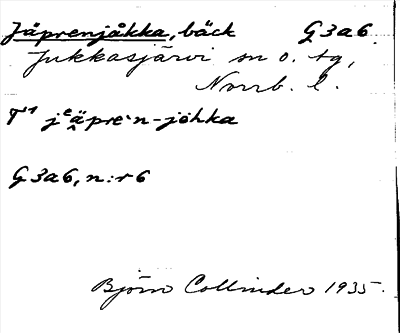 Jäprenjåkka, bäck G3a6.
Jukkasjärvi sn o. tg,
Norrb. l.
jeäpre`n-jöhka
G3a6, n:r 6
Björn Collinder 1935.